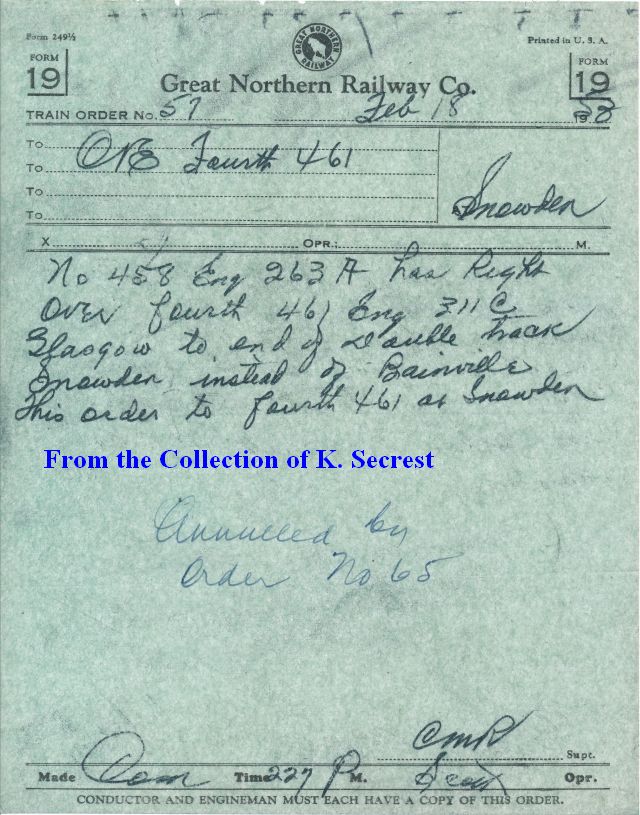 Form 249½
GREAT NORTHERN RAILWAY
Printed in U. S. A.
FORM 19
FORM 19
Great Northern Railway Co.
TRAIN ORDER NO. 57 Feb 18 1958
To
To ONE Fourth 461
To
To
At Snowden
X OPR.; M.
No 458 Eng 263 A has Right
Over fourth 461 Eng 311 C
Glasgow to end of Double track
Snowden instead of Bainville
This order to fourth 461 at Snowden
From the Collection of K. Secrest
Annulled by
Order No 65
CMR Supt.
Made Com Time 227 P M. Scott Opr.
CONDUCTOR AND ENGINEMAN MUST EACH HAVE A COPY OF THIS ORDER.